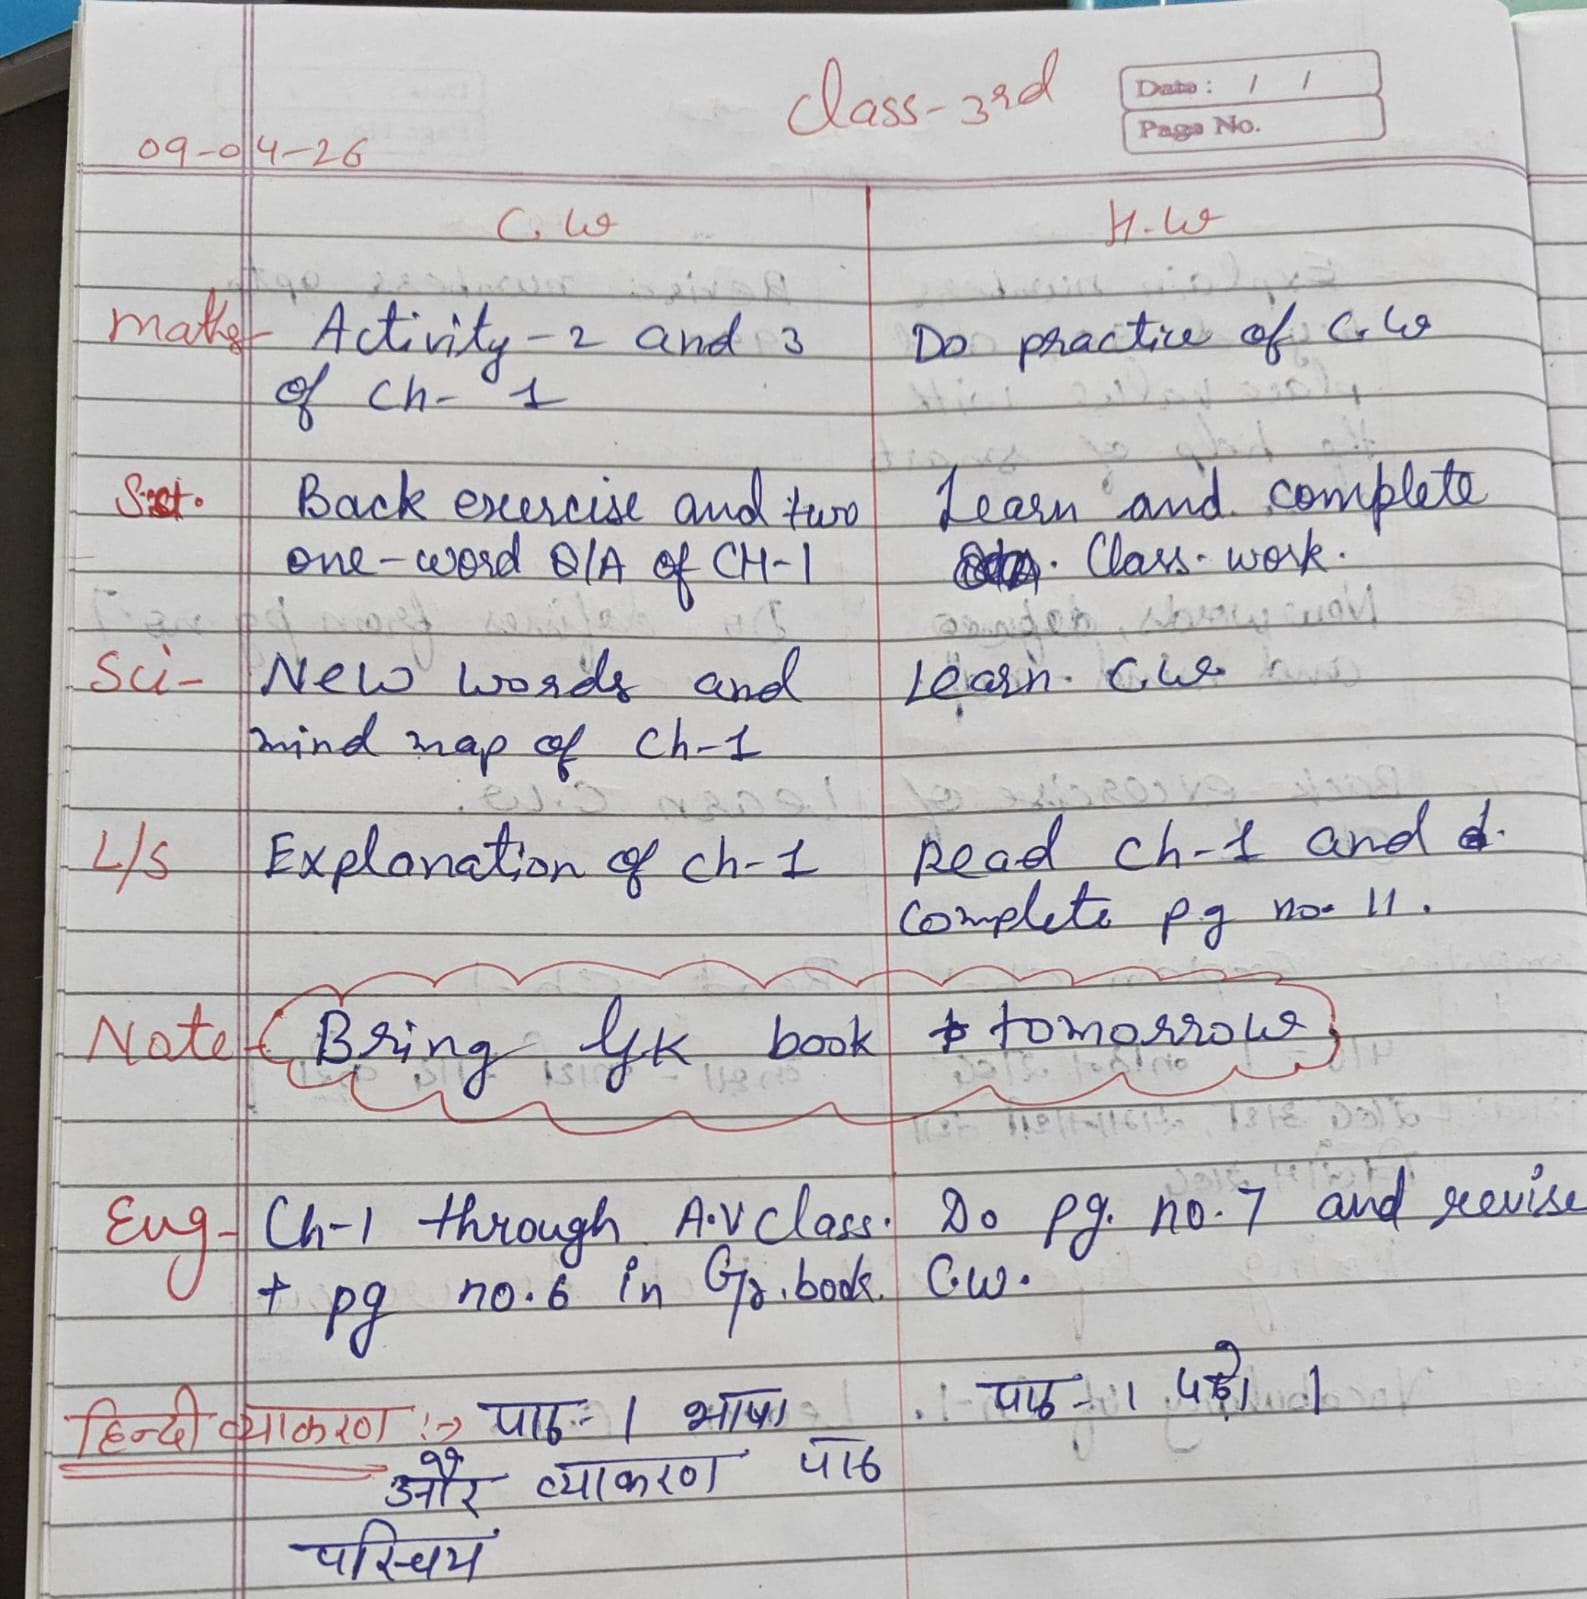 Class-3rd
Date : / /
Page No.
09-04-26
C.W H.W
Maths- Activity-2 and 3 Do practice of C.W
of Ch- 1
S.st. Back exercise and two Learn and complete
one-word Q/A of CH-1 Class-work.
Sci- New words and Learn C.W
mind map of Ch-1
L/S Explanation of ch-1 Read ch-1 and
complete pg no. 11.
Note- Bring GK book tomorrow
Eng- Ch-1 through A.V class. Do pg. no. 7 and revise
+ pg no. 6 in Gr. book. C.W.
हिन्दी व्याकरण :-> पाठ - 1 भाषा पाठ - 1 पढ़े।
और व्याकरण पाठ
परिचय